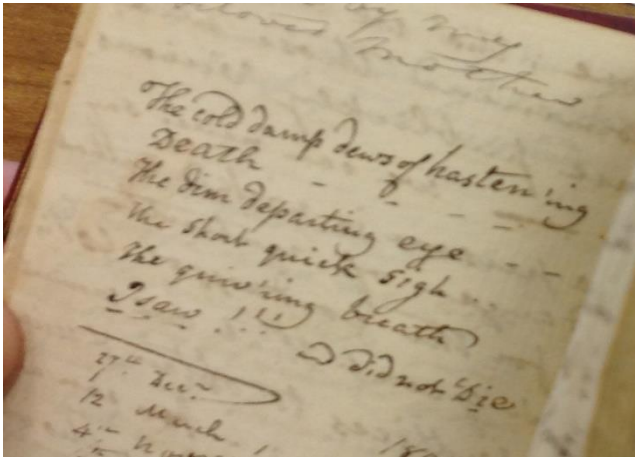 by my
beloved Mother
The cold damp dews of hasten'ing
Death - - - - -
The dim departing eye - - -
the short quick sigh - -
The quiv'ring breath
I saw !!!
& did not Die
27th Decr
12 March
4th